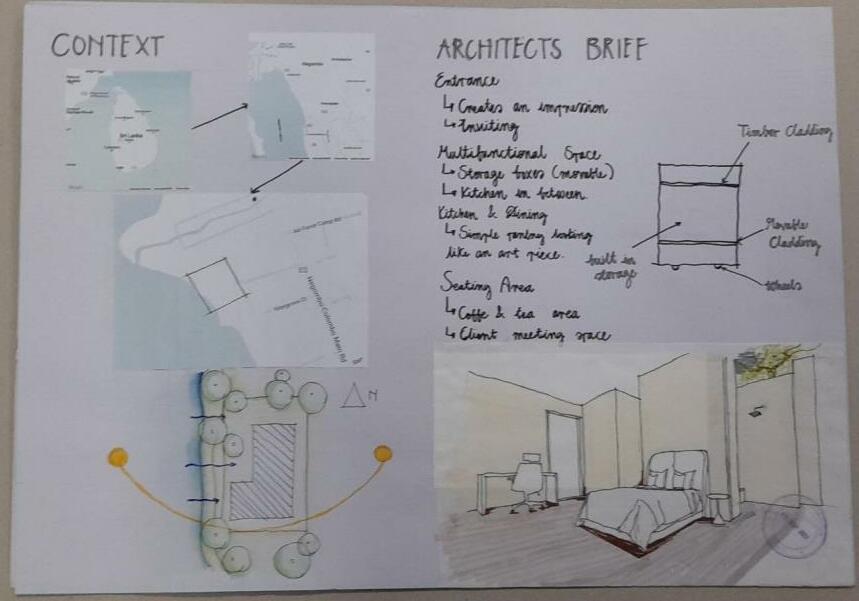 CONTEXT
Sri Lanka
Negombo
Air Force Camp Rd
Negombo-Colombo Main Rd
N
ARCHITECTS BRIEF
Entrance
↳ Creates an impression
↳ Inviting
Multifunctional Space
↳ Storage boxes (movable)
↳ Kitchen in between.
Kitchen & Dining
↳ Simple looking
like an art piece.
Seating Area
↳ Coffe & tea area
↳ Client meeting space
Timber Cladding
Movable
Cladding
built in
storage
Wheels